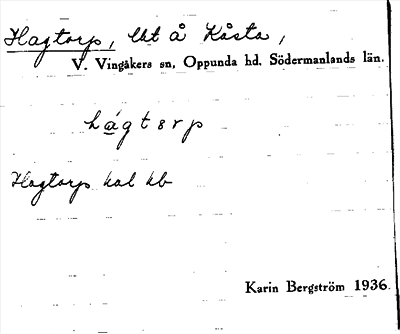 Hagtorp, lht å Kåsta,
V. Vingåkers sn, Oppunda hd. Södermanlands län.
hágtərp
Hagtorp hal hb
Karin Bergström 1936.